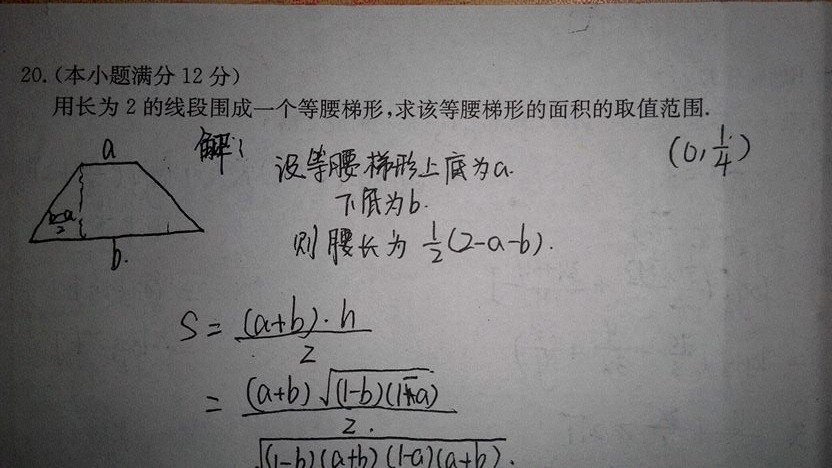 20.(本小题满分 12 分)
用长为 2 的线段围成一个等腰梯形,求该等腰梯形的面积的取值范围.
a
解:
设等腰梯形上底为a.
(0, 1/4)
下底为b.
(b-a)/2
b.
则腰长为 1/2(2-a-b).
S = (a+b)·h / 2
= (a+b)√(1-b)(1-a) / 2.
√(1-b)(a+b)(1-a)(a+b).